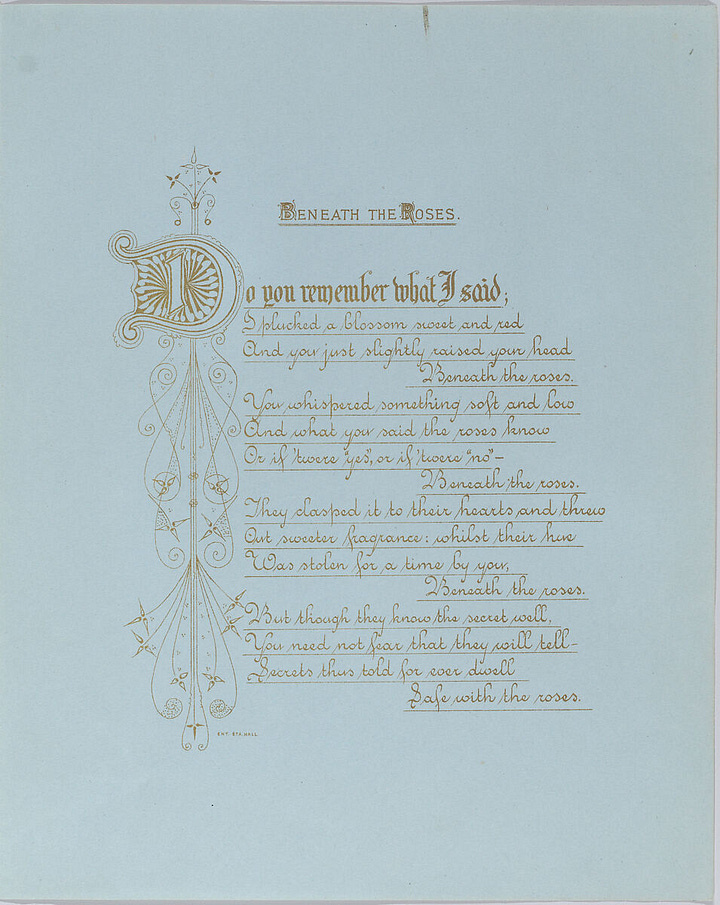 BENEATH THE ROSES.
Do you remember what I said;
I plucked a blossom sweet and red
And you just slightly raised your head
Beneath the roses.
You whispered something soft and low
And what you said the roses know
Or if 'twere "yes", or if 'twere "no"–
Beneath the roses.
They clasped it to their hearts and threw
Out sweeter fragrance: whilst their hue
Was stolen for a time by you,
Beneath the roses.
But though they know the secret well,
You need not fear that they will tell–
Secrets thus told for ever dwell
Safe with the roses.
ENT. STA. HALL